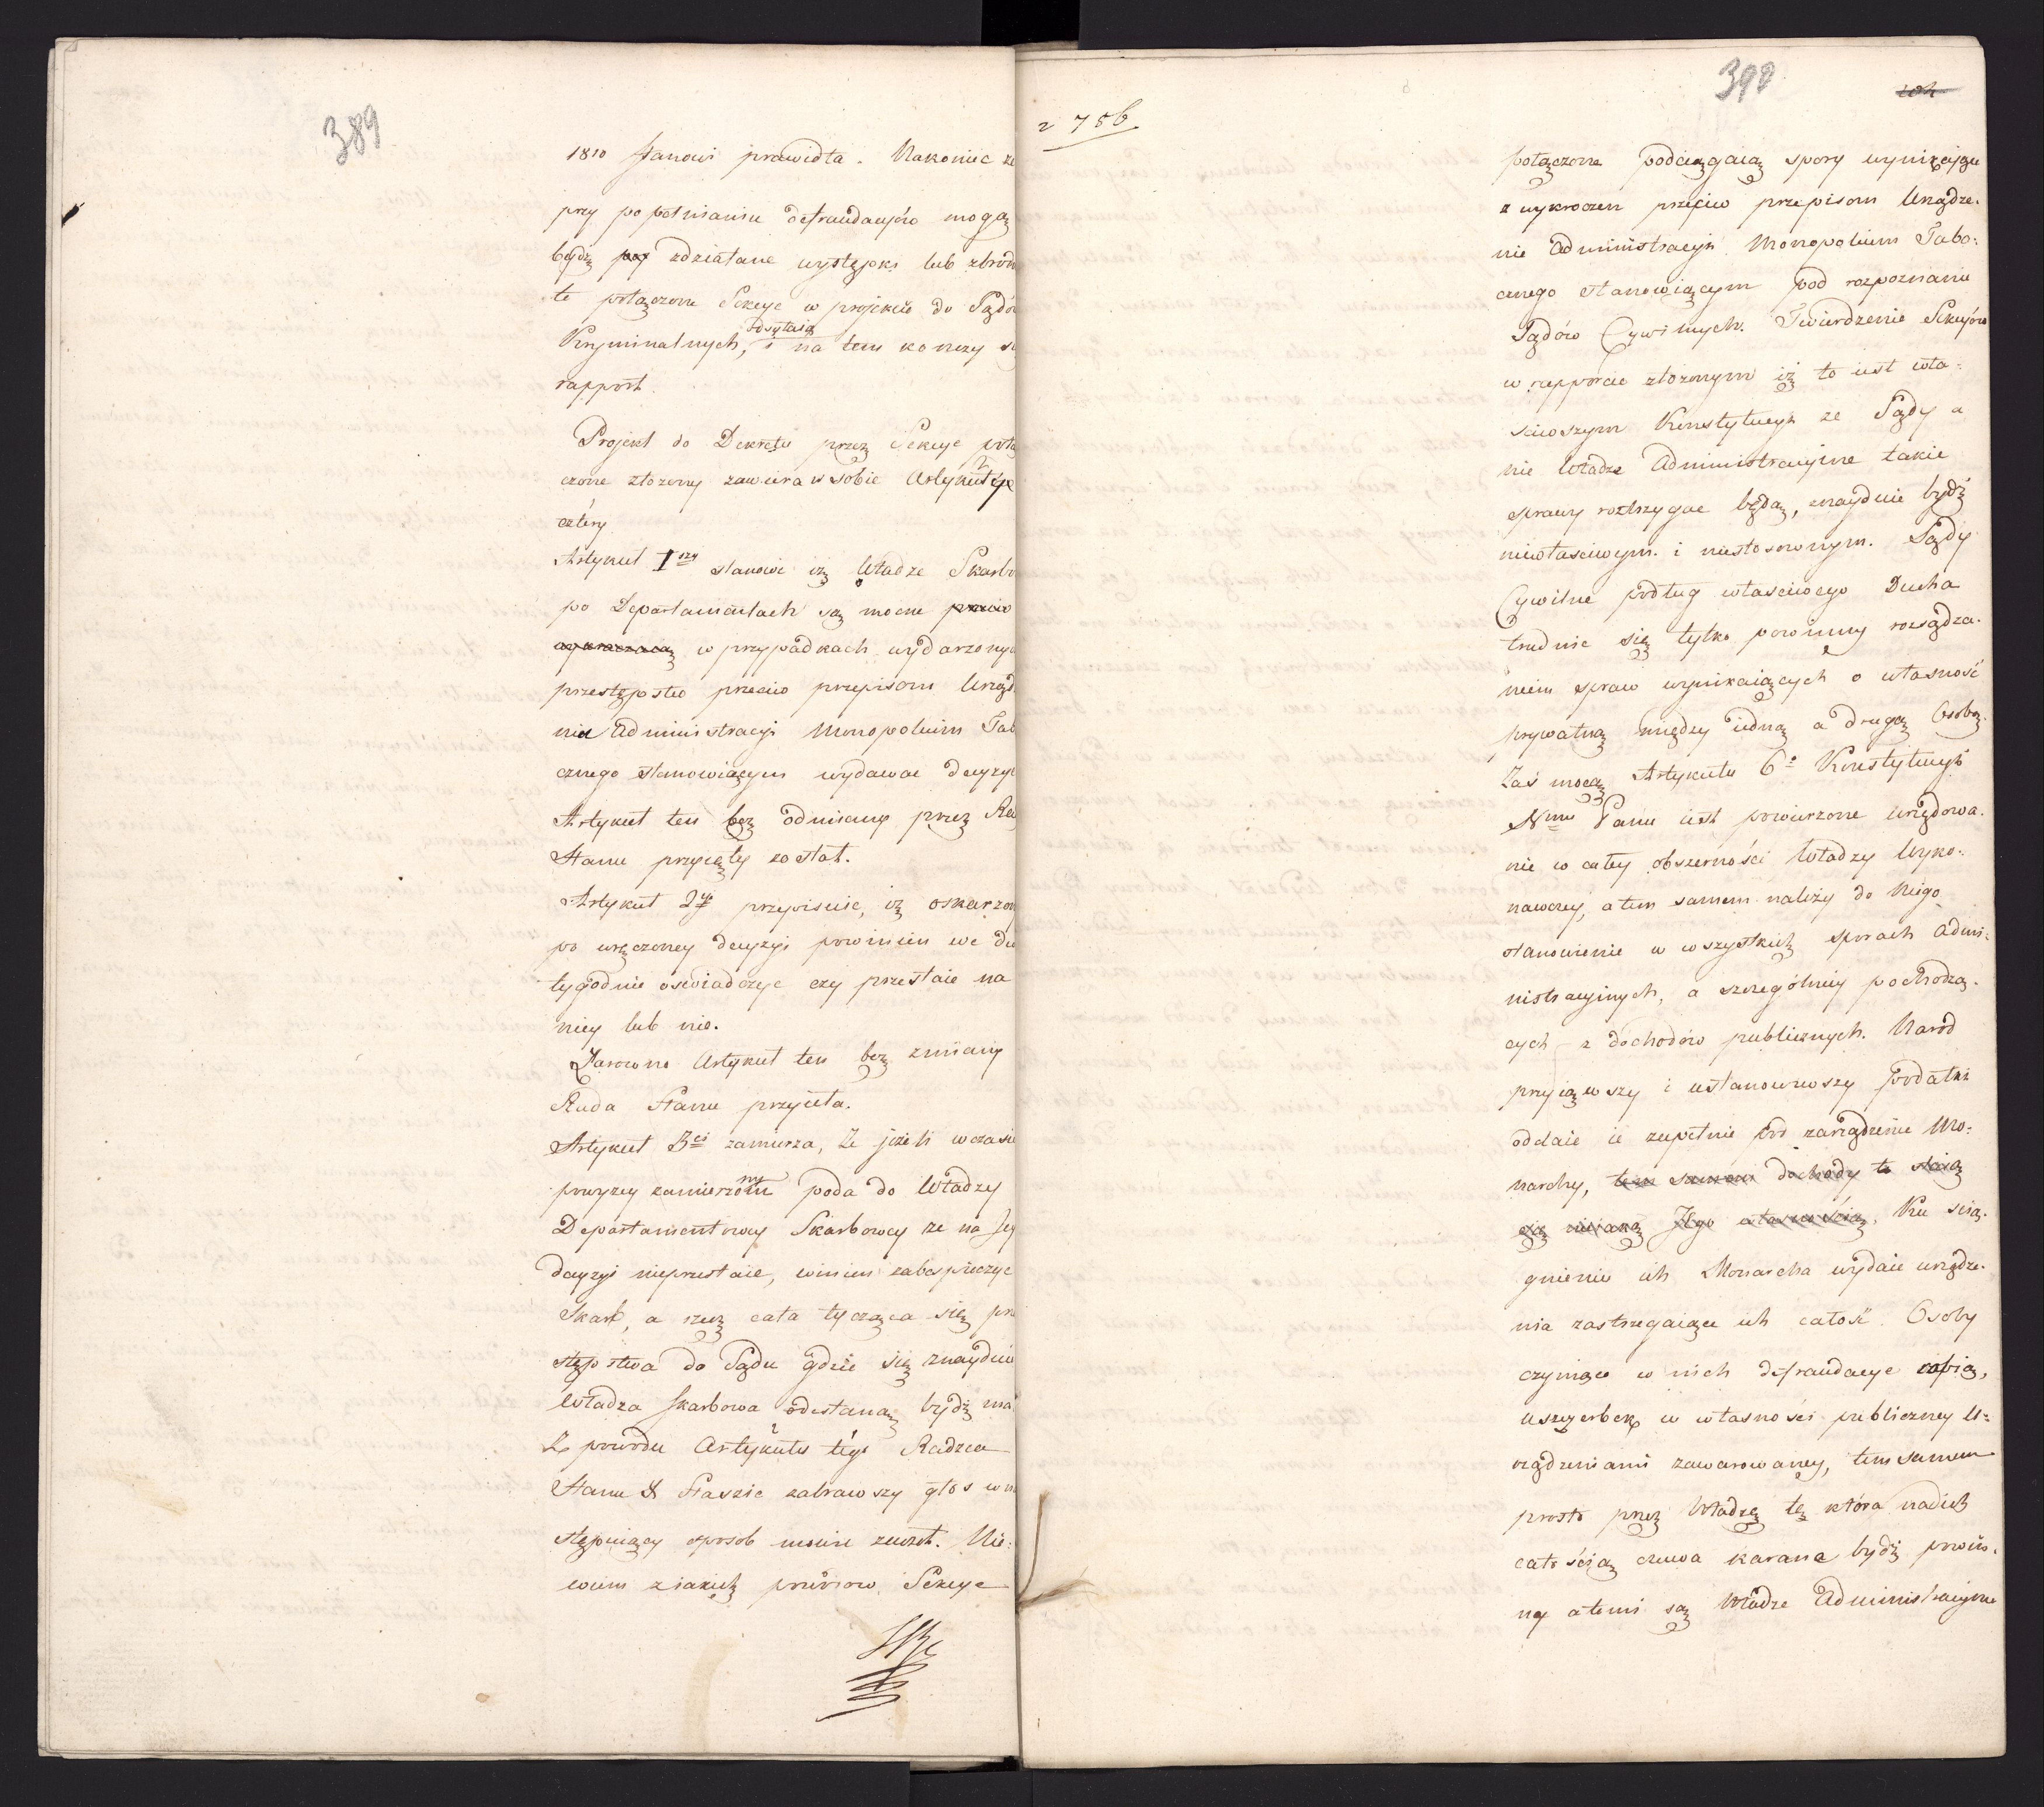 389
1810 stanowi prawidła. Nakoniec ze
przy popełnianiu defraudacyów mogą
bydź zdziałane występki lub zbrodn
te połączone Sekcye w projekcie do Sądów
odsyłaią
Kryminalnych, i na tem konczy się
rapport.
Projekt do Dekretu przez Sekcye połą
czone złożony zawiera w sobie Artykuły
cztery
Artykuł Iszy stanowi iż Władze Skarbo
po Departamentach są mocne przeciw
wykraczaią w przypadkach wydarzonych
przestępstw przeciw przepisom Urządze
nie Administracyi Monopolium Tab
cznego stanowiącym wydawać decyzye
Artykuł ten bez odmiany przez Ra
Stanu przyięty został.
Artykuł 2gi przepisuie, iż oskarzon
po wręczoney decyzyi powinien we dw
tygodnie oświadczyć czy przestaie na
niey lub nie.
Zarowno Artykuł ten bez zmiany
Rada Stanu przyieła.
Artykuł 3ci zamierza, że jeżeli w czasie
powyzey zamierzonym poda do Władzy
Departamentowey Skarbowey ze na Jey
decyzyi nieprzestaie, winien zabespieczyc
Skarb, a rzecz cała tycząca się prze
stępstwa do Sądu gdzie się znayduie
Władza Skarbowa odesłaną bydź ma.
Z powodu Artykułu tego Radzca
Stanu X Staszic zabrawszy głos w na
stępuiący sposob mówić zaczął. Nie:
wiem z iakich powodow Sekcye
2756
390
104
połączone podciągaią spory wynikaiące
z wykroczen przeciw przepisom Urządze.
nie Administracyi Monopolium Taba:
cznego stanowiącym pod rozpoznanie
Sądów Cywilnych. Twierdzenie Sekcyów
w rapporcie złożonym iż to iest wła:
sciwszym Konstytucyi ze Sądy a
nie Władze Administracyine takie
sprawy roztrzygac będą, znayduie bydź
niewłasciwym i niestosownym. Sądy
Cywilne podług własciwego Ducha
trudnić się tylko powinny rozsądza.
niem spraw wynikaiących o własność
prywatną między iedną a drugą Osobą.
Zaś mocą Artykułu 6o Konstytucyi
Nmu Panu iest powierzone urzędowa.
nie w całey obszerności Władzy Wyko:
nawczey, a tem samem należy do Niego
stanowienie w wszystkich sporach Admi:
nistracyinych, a szczególniey pochodzą.
cych z dochodów publicznych. Narod
przyiąwszy i ustanowiwszy podatki
oddaie ie zupełnie pod zarządzenie Mo:
narchy, tem samem dochody te staią
się niiaką Jego własnością. Ku scią.
gnieniu ich Monarcha wydaie urządze.
nia zastrzegaiące ich całość. Osoby
czyniące w nich defraudacye robią,
uszczerbek w własności publiczney U:
rządzeniami zawarowaney, tem samem
prosto przez Władzę tę która nad ich
całością czuwa karane bydź powin.
ny a temi są Władze Administracyine